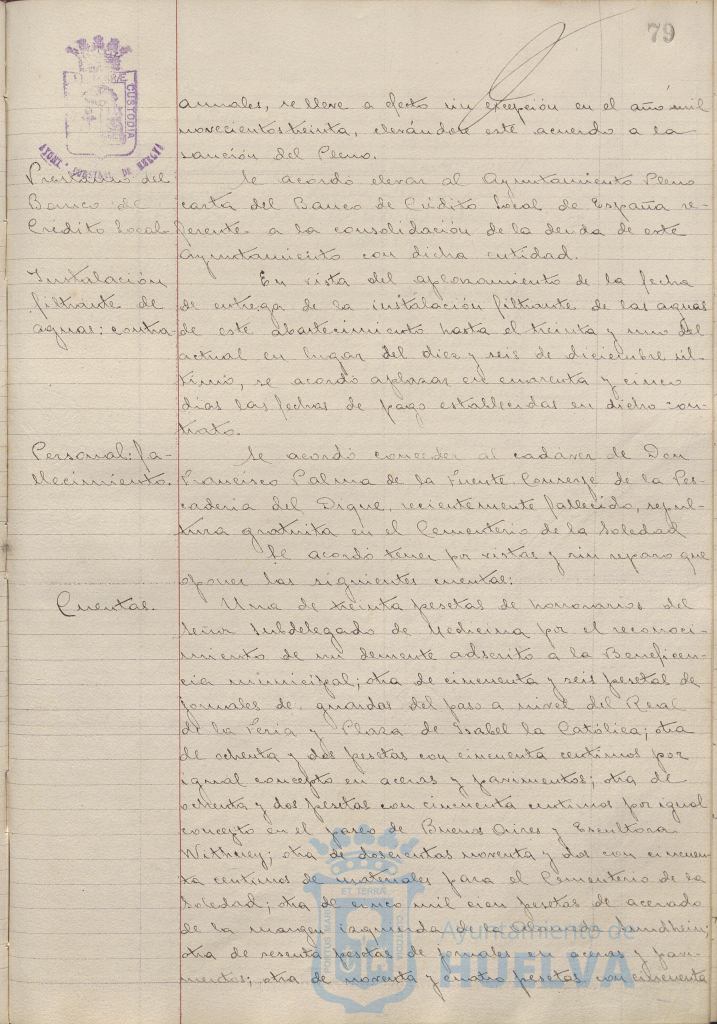 79
CUSTODIA
AYUNT
DE HUELVA
anuales, se lleve a efecto sin excepción en el año mil
novecientos treinta, elevándose este acuerdo a la
sanción del Pleno.
Préstamo del
Banco de
Crédito Local
Se acordó elevar al Ayuntamiento Pleno
carta del Banco de Crédito Local de España re-
ferente a la consolidación de la deuda de este
Ayuntamiento con dicha entidad.
Instalación
filtrante de
aguas: contra-
En vista del aplazamiento de la fecha
de entrega de la instalación filtrante de las aguas
de este abastecimiento hasta el treinta y uno del
actual en lugar del diez y seis de diciembre úl-
timo, se acordó aplazar en cuarenta y cinco
días las fechas de pago establecidas en dicho con-
trato.
Personal: fa-
llecimiento.
Se acordó conceder al cadaver de Don
Francisco Palma de la Fuente, Conserge de la Pes-
caderia del Dique, recientemente fallecido, sepul-
tura gratuita en el Cementerio de la Soledad
Se acordó tener por vistas y sin reparo que
oponer las siguientes cuentas:
Cuentas.
Una de treinta pesetas de honorarios del
Señor Subdelegado de Medicina por el reconoci-
miento de un demente adscrito a la Beneficen-
cia municipal; otra de cincuenta y seis pesetas de
jornales de guardas del paso a nivel del Real
de la Feria y Plaza de Isabel la Católica; otra
de ochenta y dos pesetas con cincuenta centimos por
igual concepto en aceras y pavimentos; otra de
ochenta y dos pesetas con cincuenta centimos por igual
concepto en el paseo de Buenos Aires y Escultora
Withney; otra de doscientas noventa y dos con cincuen-
ta centimos de materiales para el Cementerio de la
Soledad; otra de cinco mil cien pesetas de acerado
de la margen izquierda de la Alameda Sundheim;
otra de sesenta pesetas de jornales en aceras y pavi-
mentos; otra de noventa y cuatro pesetas con cincuenta
PORTUS MARIS
ET TERRAE
CUSTODIA
Ayuntamiento de
HUELVA